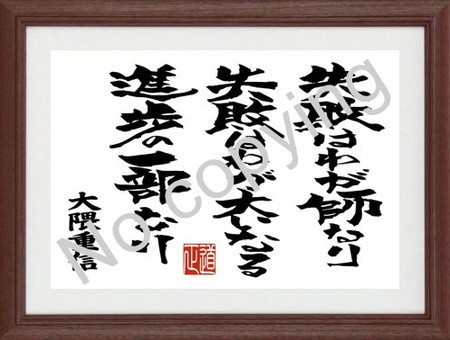 失敗はわが師なり
失敗はわが大いなる
進歩の一部なり
大隈重信
No copying